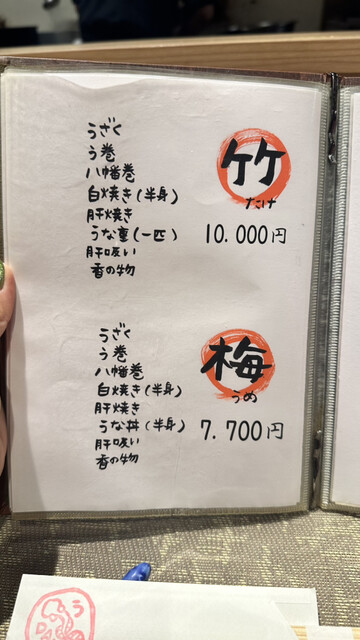 うざく
う巻
八幡巻
白焼き(半身)
肝焼き
うな重(一匹)
肝吸い
香の物
竹
たけ
10.000円
うざく
う巻
八幡巻
白焼き(半身)
肝焼き
うな丼(半身)
肝吸い
香の物
梅
うめ
7.700円
う